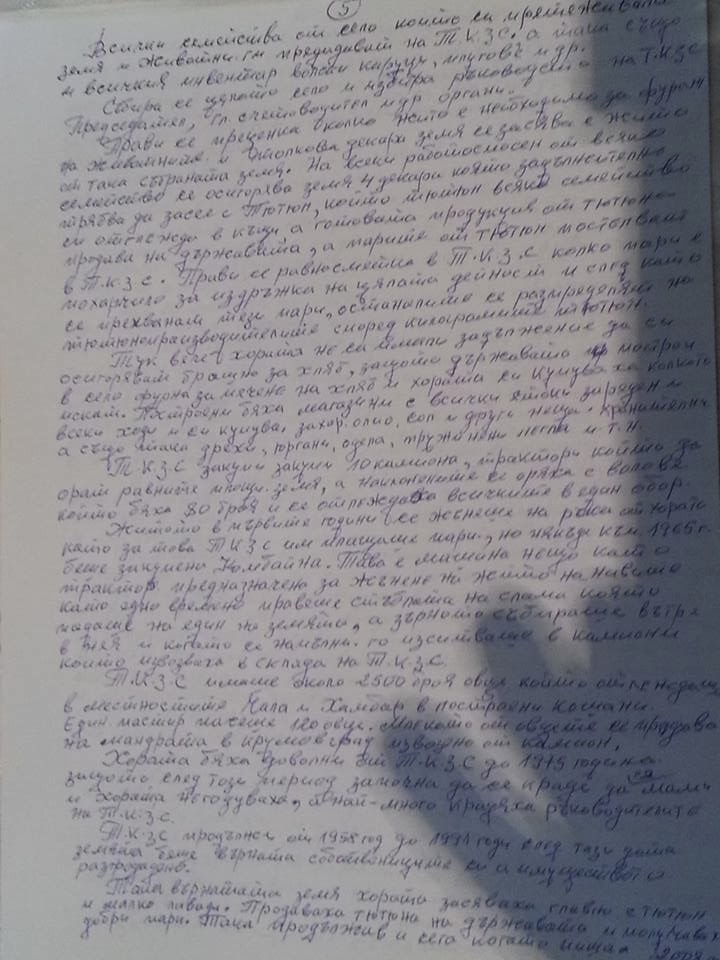 5
Всички семейства от село които си притежаваха
земя и животни ги предадват на Т.К.З.С. а така също
и всичкия инвентар волски каруци, плугове и др.
Събира се цялото село и избира ръководство на Т.К.З.С
Председател, гл счетоводител и др органи.
Прави се преценка колко жито е необходимо за фураж
на животните и толкова декара земя се засява с жито
от така събраната земя. На всеки работоспособен от всяко
семейство се осигорява земя 4 декара която задължително
трябва да засее с Тютюн, който тютюн всяко семейство
си отглежда в къщи а готовата продукция от тютюна
продава на държавата, а парите от тютюн постопват
в Т.К.З.С. Прави се равносметка в Т.К.З.С колко пари е
похарчило за издръжка на цялата дейност и след като
се прехванат тези пари, останалите се разпределят на
тютюнопроизводителите според килограмите тютюн.
Тук вече хората не си имали задължение да си
осигоряват брашно за хляб, защото държавата построи
в село фурна за печене на хляб и хората си купуваха колкото
искат. Построени бяха магазини с всички стоки заредени
всеки ходи и си купува захар, олио, сол и други неща хранителни
а също така дрехи, юргани, одела, пружинени легла и т.н.
Т.К.З.С закупи закупи 10 камиона, трактори които да
орат равните площи земя, а наклонените се оряха с волове
които бяха 80 броя и се отглеждаха всичките в един обор.
Житото в първите години се жънеше на ръка от хората
като за това Т.К.З.С им плащаше пари, но някъде към 1965г.
беше закупена Комбайна. Това е машина нещо като
трактор предназначена за жънене на житото на нивите
като едно времено правеше стъблата на слама която
падаше на един на земята, а зърното събираше вътре
в нея и когато се напълни го изсипваше в камиони
които извозваха в склада на Т.К.З.С.
Т.К.З.С имаше около 2500 броя овце, които отглеждаха
в местностите Чала и Хамбар в построени кошари.
Един пастир пасеше 120 овце. Млякото от овцете се продава
на мандрата в Крумовград извозно от камион.
Хората бяха доволни от Т.К.З.С до 1975 година
защото след този период започна да се краде да се мами
и хората негодуваха, а най-много крадяха ръководителите
на Т.К.З.С.
Т.К.З.С продължи от 1958 год до 1991 год след тази дата
земята беше върната собствениците си а имуществото
разпродадено.
Така върнатата земя хората засяваха главно с тютюн
и малко ливади. Продаваха тютюна на държавата и получаваха
добри пари. Така продължив и сега когато пиша